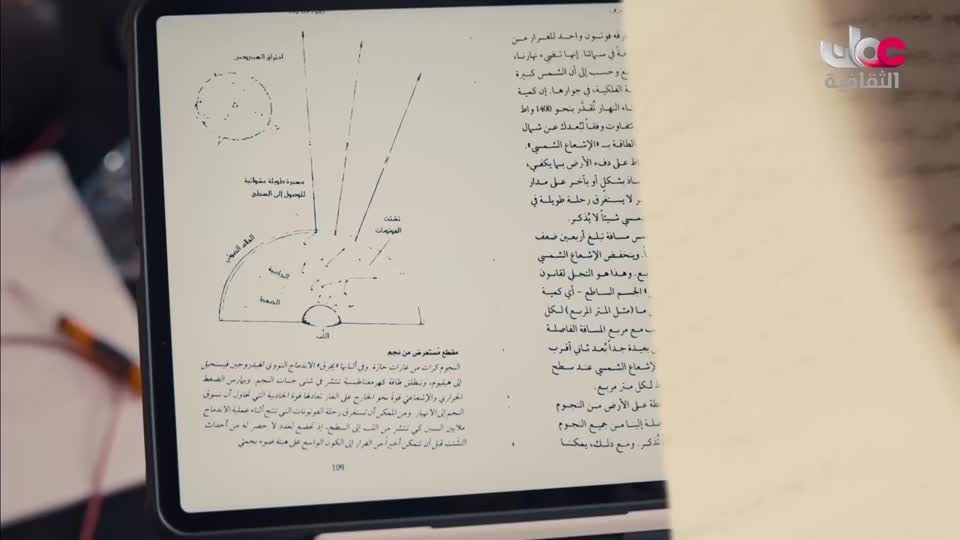 الثقافية
احتراق الهيدروجين
مسيرة طويلة عشوائية
للوصول إلى السطح
تشتت
الفوتونات
الغلاف الضوئي
الجاذبية
الضغط
اللب
مقطع مُستعرض من نجم
النجوم كرات من غازات حارّة. وفي ألبابها «يحرق» الاندماج النووي الهيدروجين فيستحيل
إلى هيليوم، وتنطلق طاقة كهرمغناطيسية تنتشر في شتى جنبات النجم. ويمارس الضغط
الحراري والإشعاعي قوة نحو الخارج على الغاز تعادلها قوة الجاذبية التي تحاول أن تسوق
النجم إلى الانهيار. ومن الممكن أن تستغرق رحلة الفوتونات التي تنتج أثناء عملية الاندماج
ملايين السنين كي تنتشر من اللب إلى السطح، إذ تخضع لعدد لا حصر له من أحداث
التشتت قبل أن تتمكن أخيراً من الفرار إلى الكون الواسع على هيئة ضوء نجمي
109
فوتون واحد للفرار من
في سمائنا. إنها تضيء نهارنا،
وحسب إلى أن الشمس كبيرة
الفلكية، في جوارها. إن كمية
النهار تُقدَّر بنحو 1400 واط
تتفاوت وفقاً لبُعدك عن شمال
الطاقة بـ «الإشعاع الشمسي».
على دفء الأرض بما يكفي،
بشكل أو بآخر على مدار
لا يستغرق رحلة طويلة في
شيئاً لا يُذكر.
مسافة تبلغ أربعين ضعف
وينخفض الإشعاع الشمسي
وهذا هو التجلي لقانون
الجسم الساطع - أي كمية
ما (مثل المتر المربع) لكل
مع مربع المسافة الفاصلة
بعيدة جداً يُعد ثاني أقرب
الإشعاع الشمسي عند سطح
لكل متر مربع.
على الأرض من النجوم
إلينا من جميع النجوم
تُذكر. ومع ذلك، يمكننا